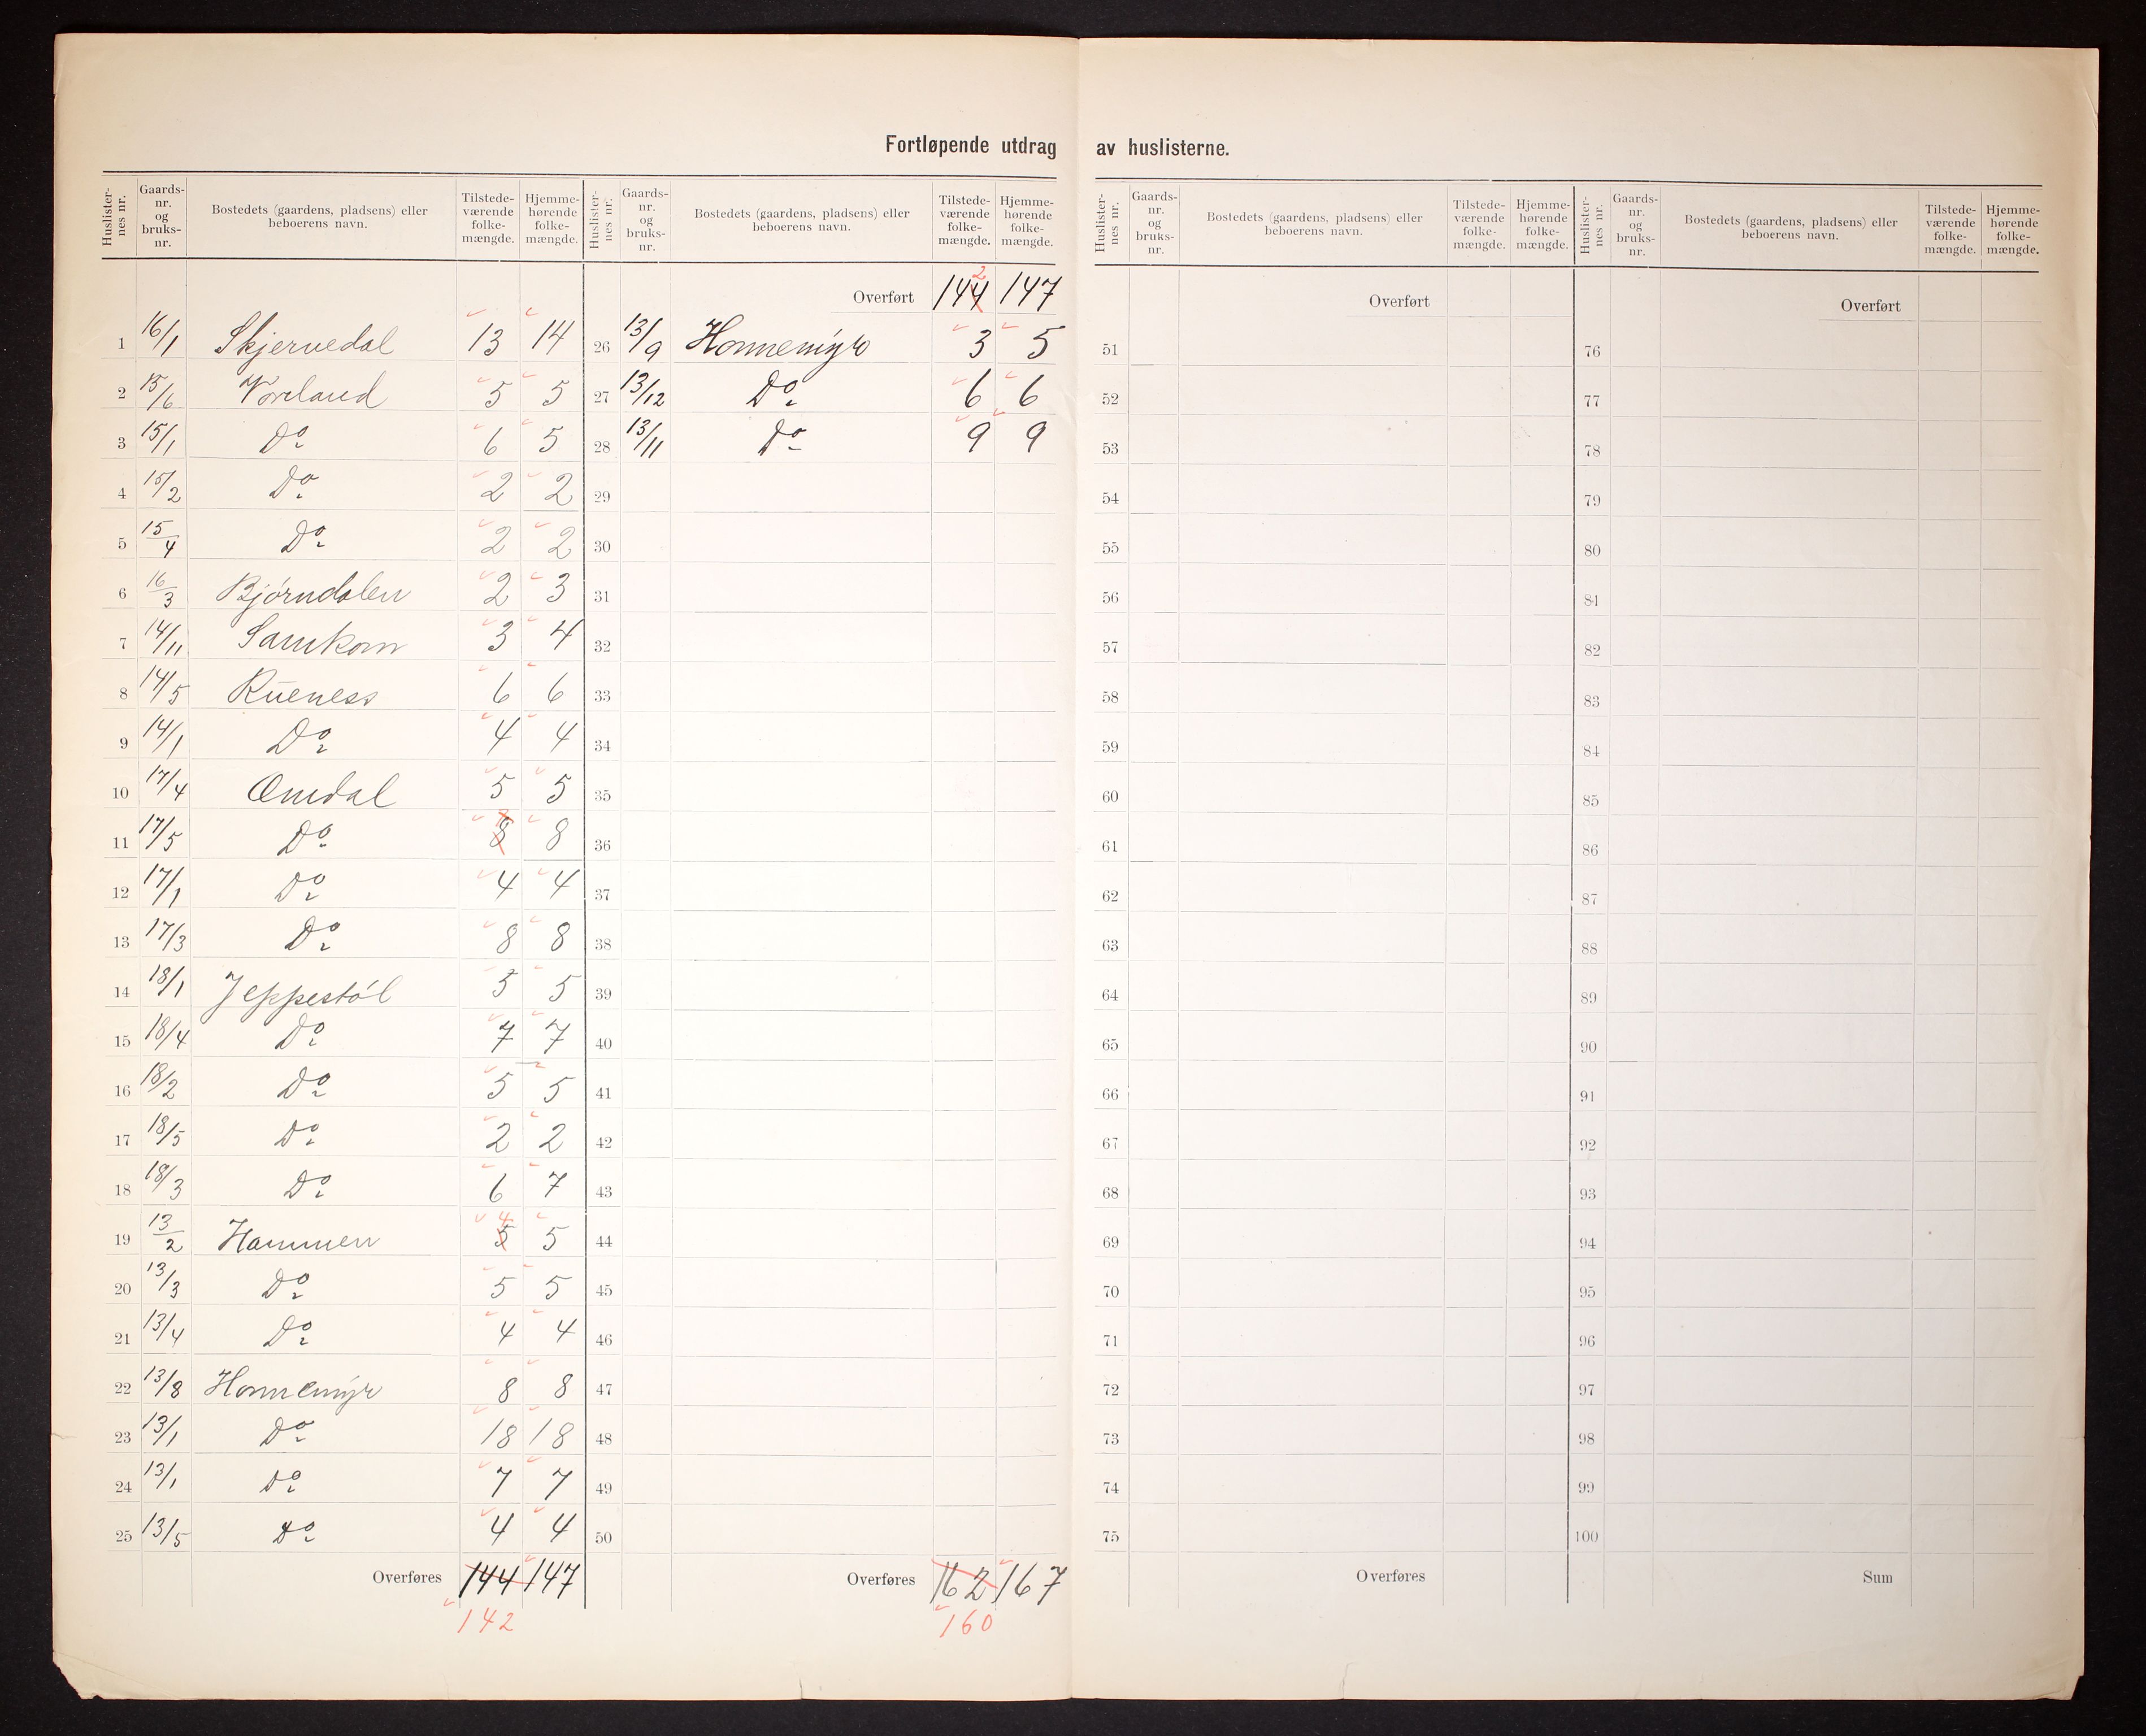 Fortløpende utdrag av huslisterne.
Huslisternes nr. Gaards-nr. og bruks-nr. Bostedets (gaardens, pladsens) eller beboerens navn. Tilstedeværende folkemængde. Hjemmehørende folkemængde.
1 16/1 Skjervedal 13 14
2 15/6 Voreland 5 5
3 15/1 Do 6 5
4 15/2 Do 2 2
5 15/4 Do 2 2
6 16/3 Bjørndalen 2 3
7 14/11 Samkom 3 4
8 14/5 Rueness 6 6
9 14/1 Do 4 4
10 17/4 Omdal 5 5
11 17/5 Do 8 8
12 17/1 Do 4 4
13 17/3 Do 8 8
14 18/1 Jeppestøl 5 5
15 18/4 Do 7 7
16 18/2 Do 5 5
17 18/5 Do 2 2
18 18/3 Do 6 7
19 13/2 Hammen 5 4 5
20 13/3 Do 5 5
21 13/4 Do 4 4
22 13/8 Honnemyr 8 8
23 13/1 Do 18 18
24 13/1 Do 7 7
25 13/5 Do 4 4
Overføres 144 147
142
Huslisternes nr. Gaards-nr. og bruks-nr. Bostedets (gaardens, pladsens) eller beboerens navn. Tilstedeværende folkemængde. Hjemmehørende folkemængde.
Overført 144 2 147
26 13/9 Honnemyr 3 5
27 13/12 Do 6 6
28 13/11 Do 9 9
29
30
31
32
33
34
35
36
37
38
39
40
41
42
43
44
45
46
47
48
49
50
Overføres 162 167
160
Huslisternes nr. Gaards-nr. og bruks-nr. Bostedets (gaardens, pladsens) eller beboerens navn. Tilstedeværende folkemængde. Hjemmehørende folkemængde.
Overført
51
52
53
54
55
56
57
58
59
60
61
62
63
64
65
66
67
68
69
70
71
72
73
74
75
Overføres
Huslisternes nr. Gaards-nr. og bruks-nr. Bostedets (gaardens, pladsens) eller beboerens navn. Tilstedeværende folkemængde. Hjemmehørende folkemængde.
Overført
76
77
78
79
80
81
82
83
84
85
86
87
88
89
90
91
92
93
94
95
96
97
98
99
100
Sum